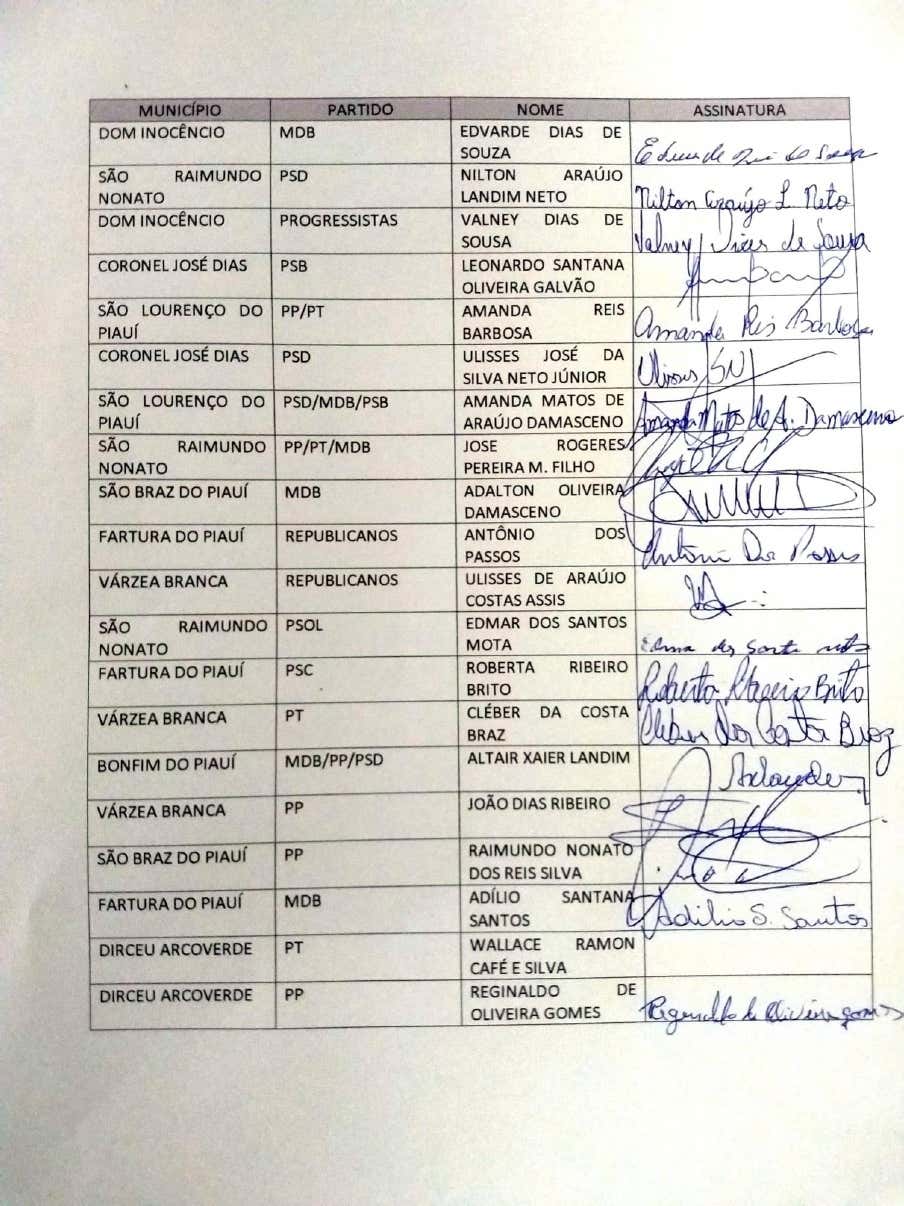 MUNICÍPIO PARTIDO NOME ASSINATURA
DOM INOCÊNCIO MDB EDVARDE DIAS DE
SOUZA
SÃO RAIMUNDO PSD NILTON ARAÚJO
NONATO LANDIM NETO Nilton Araújo L. Neto
DOM INOCÊNCIO PROGRESSISTAS VALNEY DIAS DE
SOUSA Valney Dias de Sousa
CORONEL JOSÉ DIAS PSB LEONARDO SANTANA
OLIVEIRA GALVÃO
SÃO LOURENÇO DO PP/PT AMANDA REIS
PIAUÍ BARBOSA Amanda Reis Barbosa
CORONEL JOSÉ DIAS PSD ULISSES JOSÉ DA
SILVA NETO JÚNIOR Ulisses
SÃO LOURENÇO DO PSD/MDB/PSB AMANDA MATOS DE
PIAUÍ ARAÚJO DAMASCENO Amanda Matos de A. Damasceno
SÃO RAIMUNDO PP/PT/MDB JOSE ROGERES
NONATO PEREIRA M. FILHO
SÃO BRAZ DO PIAUÍ MDB ADALTON OLIVEIRA
DAMASCENO
FARTURA DO PIAUÍ REPUBLICANOS ANTÔNIO DOS
PASSOS Antônio Dos Passos
VÁRZEA BRANCA REPUBLICANOS ULISSES DE ARAÚJO
COSTAS ASSIS
SÃO RAIMUNDO PSOL EDMAR DOS SANTOS
NONATO MOTA
FARTURA DO PIAUÍ PSC ROBERTA RIBEIRO
BRITO Roberta Ribeiro Brito
VÁRZEA BRANCA PT CLÉBER DA COSTA
BRAZ Cléber da Costa Braz
BONFIM DO PIAUÍ MDB/PP/PSD ALTAIR XAIER LANDIM
VÁRZEA BRANCA PP JOÃO DIAS RIBEIRO
SÃO BRAZ DO PIAUÍ PP RAIMUNDO NONATO
DOS REIS SILVA
FARTURA DO PIAUÍ MDB ADÍLIO SANTANA
SANTOS Adílio S. Santos
DIRCEU ARCOVERDE PT WALLACE RAMON
CAFÉ E SILVA
DIRCEU ARCOVERDE PP REGINALDO DE
OLIVEIRA GOMES Reginaldo de Oliveira gomes